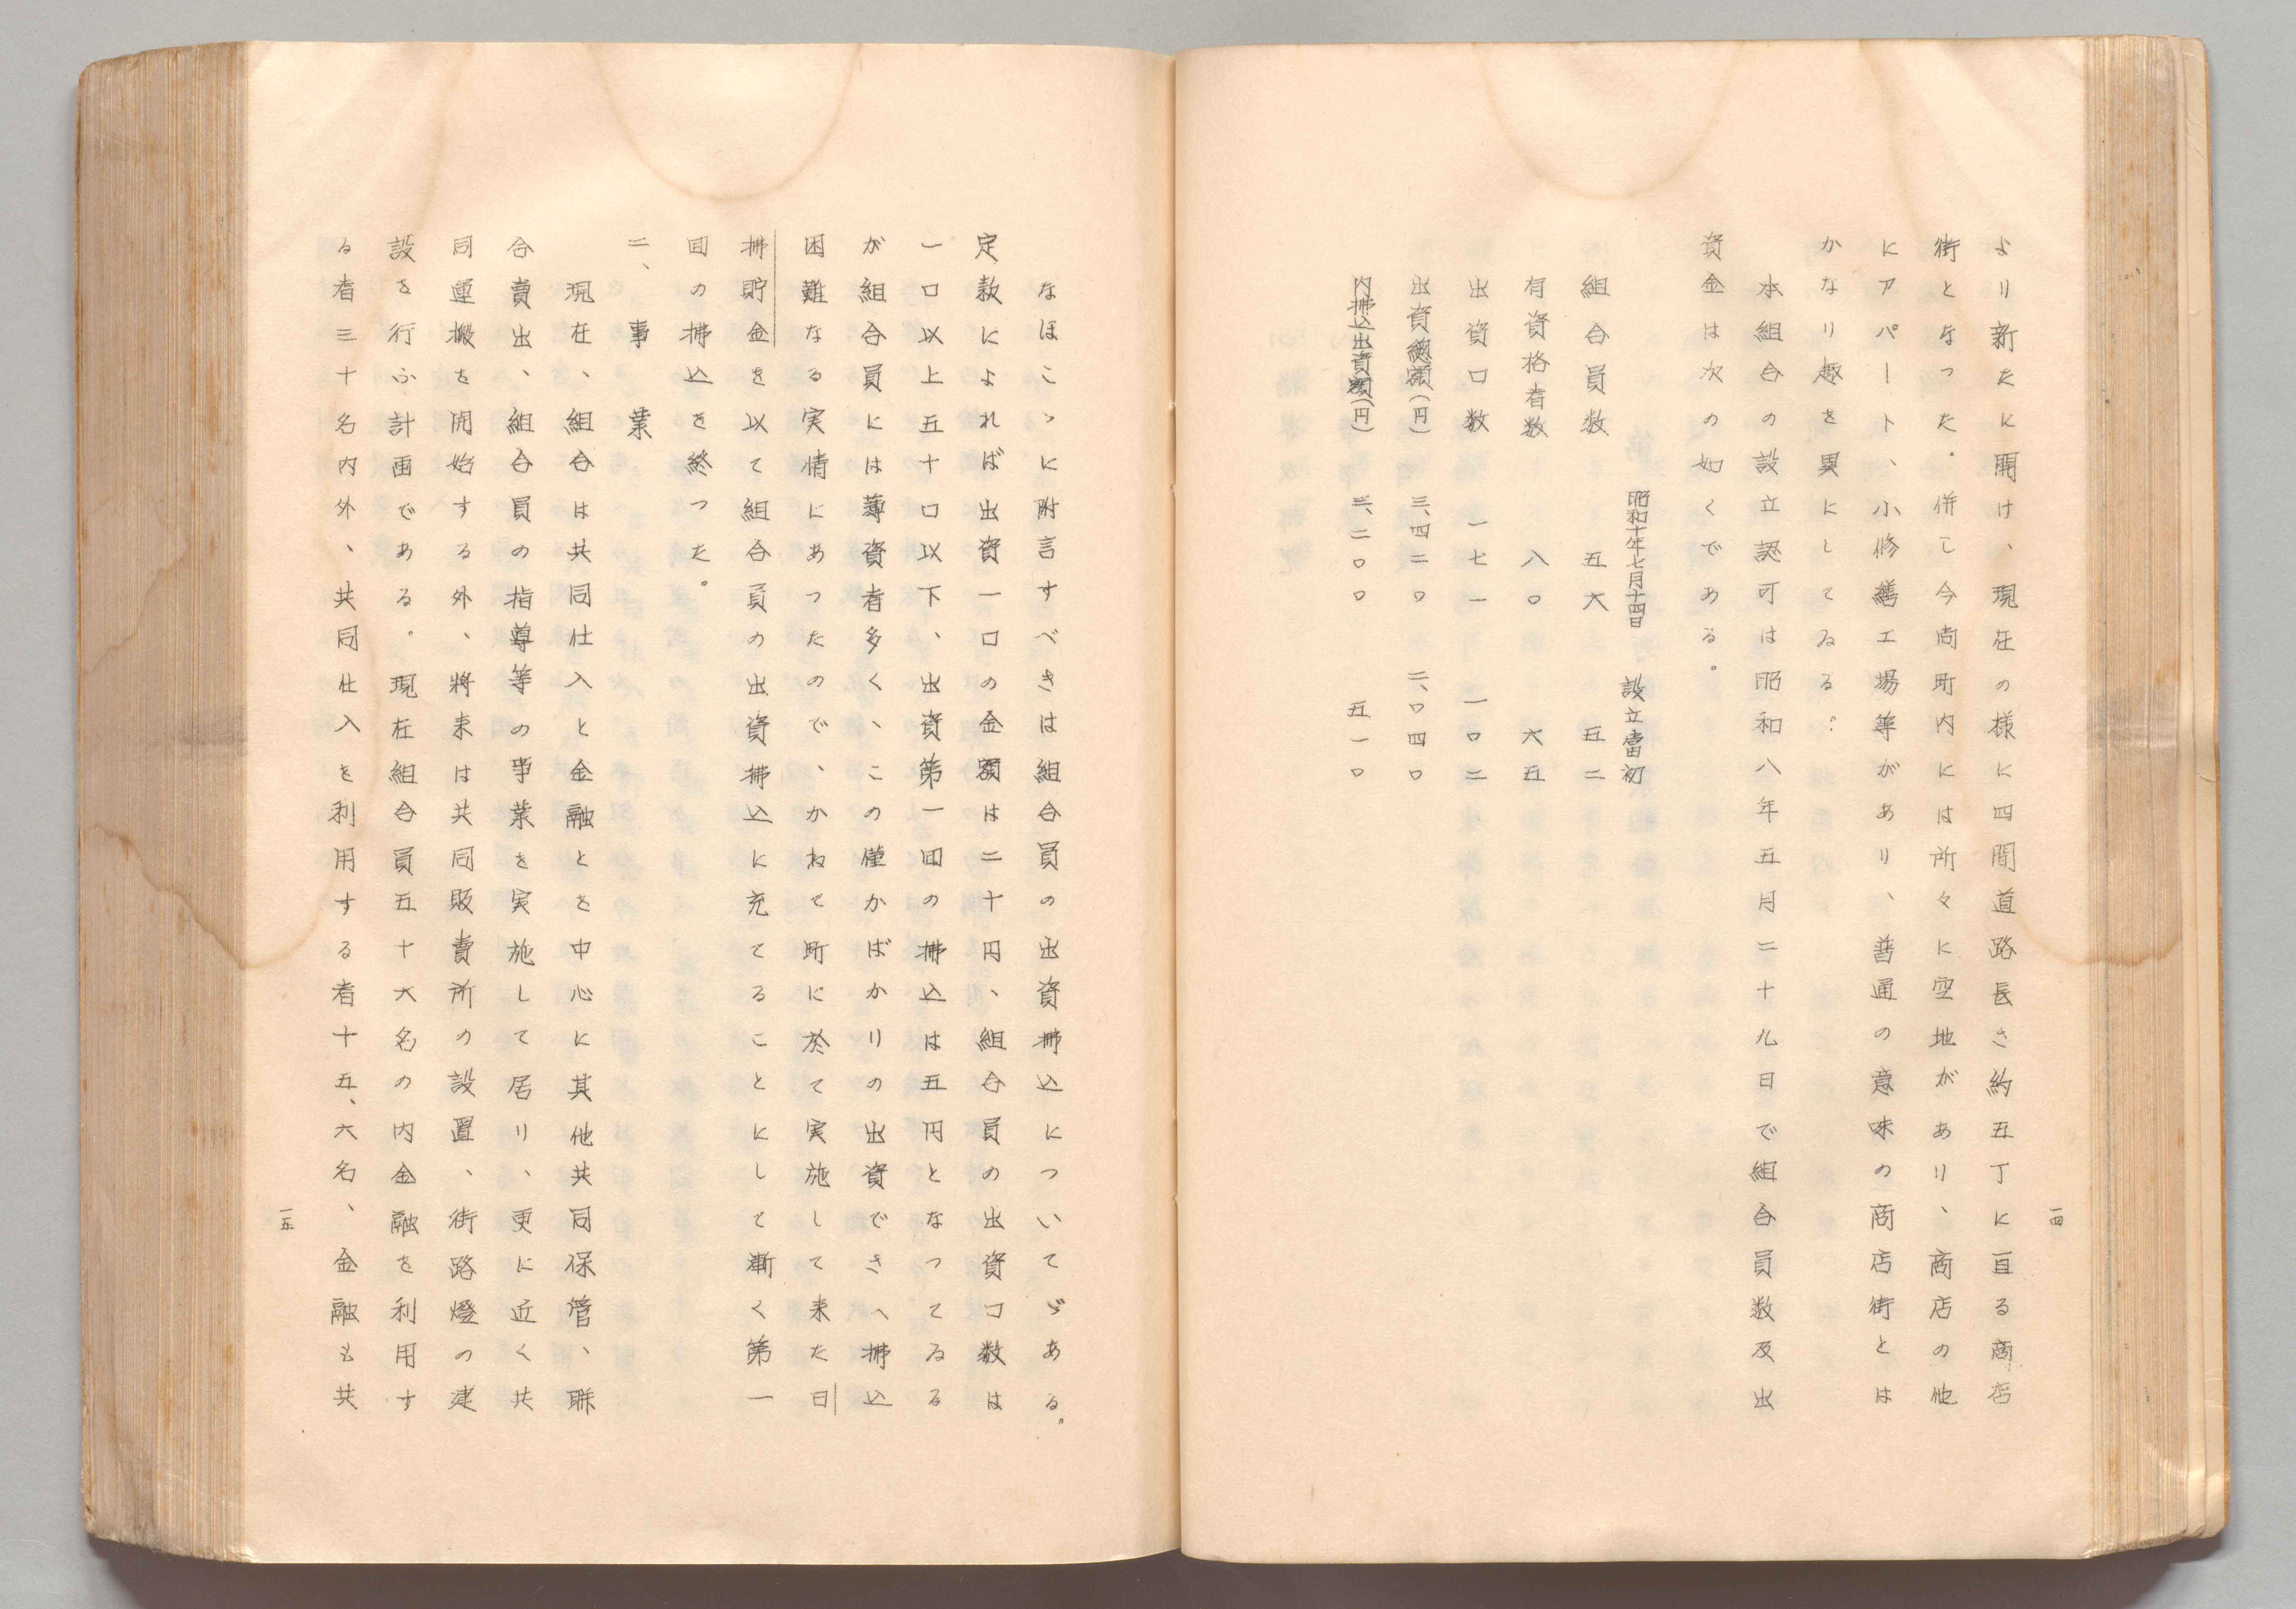 より新たに開け、現在の様に四間道路長さ約五丁に亘る商店
街となった。併し今尚町内には所々に空地があり、商店の他
にアパート、小修繕工場等があり、普通の意味の商店街とは
かなり趣を異にしてゐる。
本組合の設立認可は昭和八年五月二十九日で組合員数及出
資金は次の如くである。
昭和十年七月十四日 設立當初
組合員数 五六 五二
有資格者数 八〇 六五
出資口数 一七一 一〇二
出資總額(円) 三、四二〇 二、〇四〇
内拂込出資額(円) 三、二〇〇 五一〇
一四
なほこゝに附言すべきは組合員の出資拂込についてゞある。
定款によれば出資一口の金額は二十円、組合員の出資口数は
一口以上五十口以下、出資第一回の拂込は五円となってゐる
が組合員には薄資者多く、この僅かばかりの出資でさへ拂込
困難なる実情にあったので、かねて町に於て実施して来た日
拂貯金を以て組合員の出資拂込に充てることにして漸く第一
回の拂込を終った。
二、事業
現在、組合は共同仕入と金融とを中心に其他共同保管、聯
合賣出、組合員の指導等の事業を実施して居り、更に近く共
同運搬を開始する外、將来は共同販賣所の設置、街路燈の建
設を行ふ計画である。現在組合員五十六名の内金融を利用す
る者三十名内外、共同仕入を利用する者十五、六名、金融も共
一五